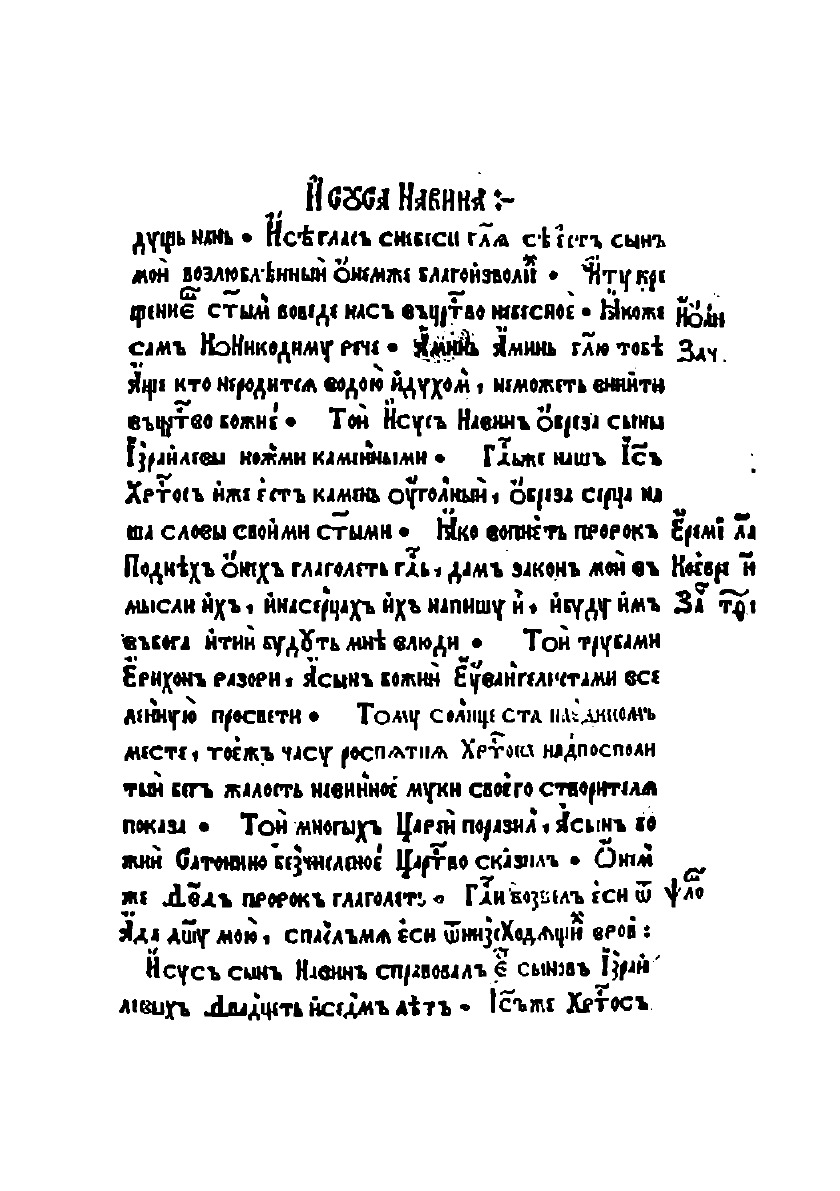 Исуса Навина :~
дущь нань • Исѣ глась снебеси гл҃ѧ сѣ естъ сынъ
мой возлюбленный ѡнемже благоизволи х • Иту кре
щение ст҃ым воведе насъ въцрт҃во небесное • Ꙗкоже
самъ коникодиму рече • Аминь Аминь гл҃ю тобѣ
Аще кто неродитсѧ водою идухом, неможеть внийти
въцрт҃во божие • Той Исусъ Навинъ ѡбреза сыны
Ізраилевы ножми каменными • Гд҃ьже нашъ Іс҃ъ
Хрт҃осъ иже естъ камень оуголный, ѡбреза серца на
ша словы своими ст҃ыми • Ꙗко вопиеть пророкъ
Поднѣхъ ѡнихъ глаголеть гд҃ь, дамъ законъ мой въ
мысли ихъ, инасерцахъ ихъ напишу и, ибуду имъ
въбога итии будуть мнѣ влюди • Той трубами
Ерихонъ разори, Асынъ божий Еуваигелистами все
леную просвети • Тому солнце ста наединомъ
месте, тоежъ часу роспѧтиѧ Хрт҃ова надпосполи
тый бегъ жалость невинное муки своего створителѧ
показа • Той многыхъ Царей поразил, Асынъ бо
жий Сатонино безчисленое Царт҃во сказилъ • Ѡним
же Дв҃дъ пророкъ глаголеть • Гд҃и возвелъ еси ѿ
Ада дш҃у мою, спаслъмѧ еси ѿнизсходѧщих вров :
Исусъ сынъ Навинъ справовалъ сыновъ Ізраи
левыхъ двадцеть иседмъ лѣтъ • Іс҃ъже Хрт҃осъ
Иѡан
Зач.
Еремі ла
Коевре и
За трі
ѱло